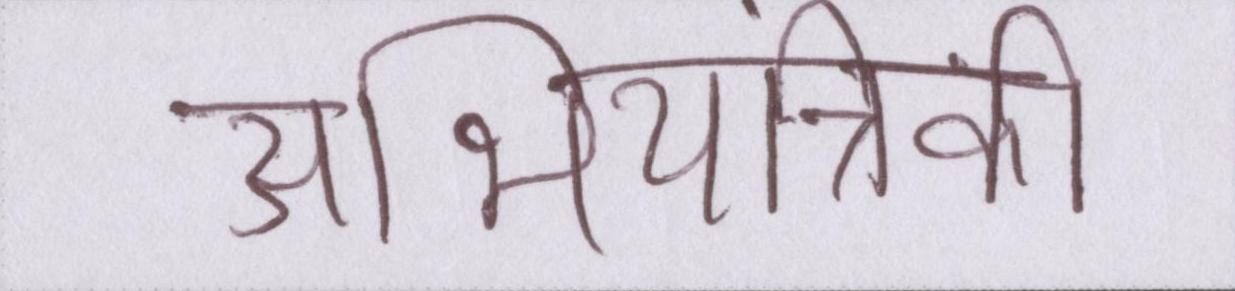 अभियंत्रिकी